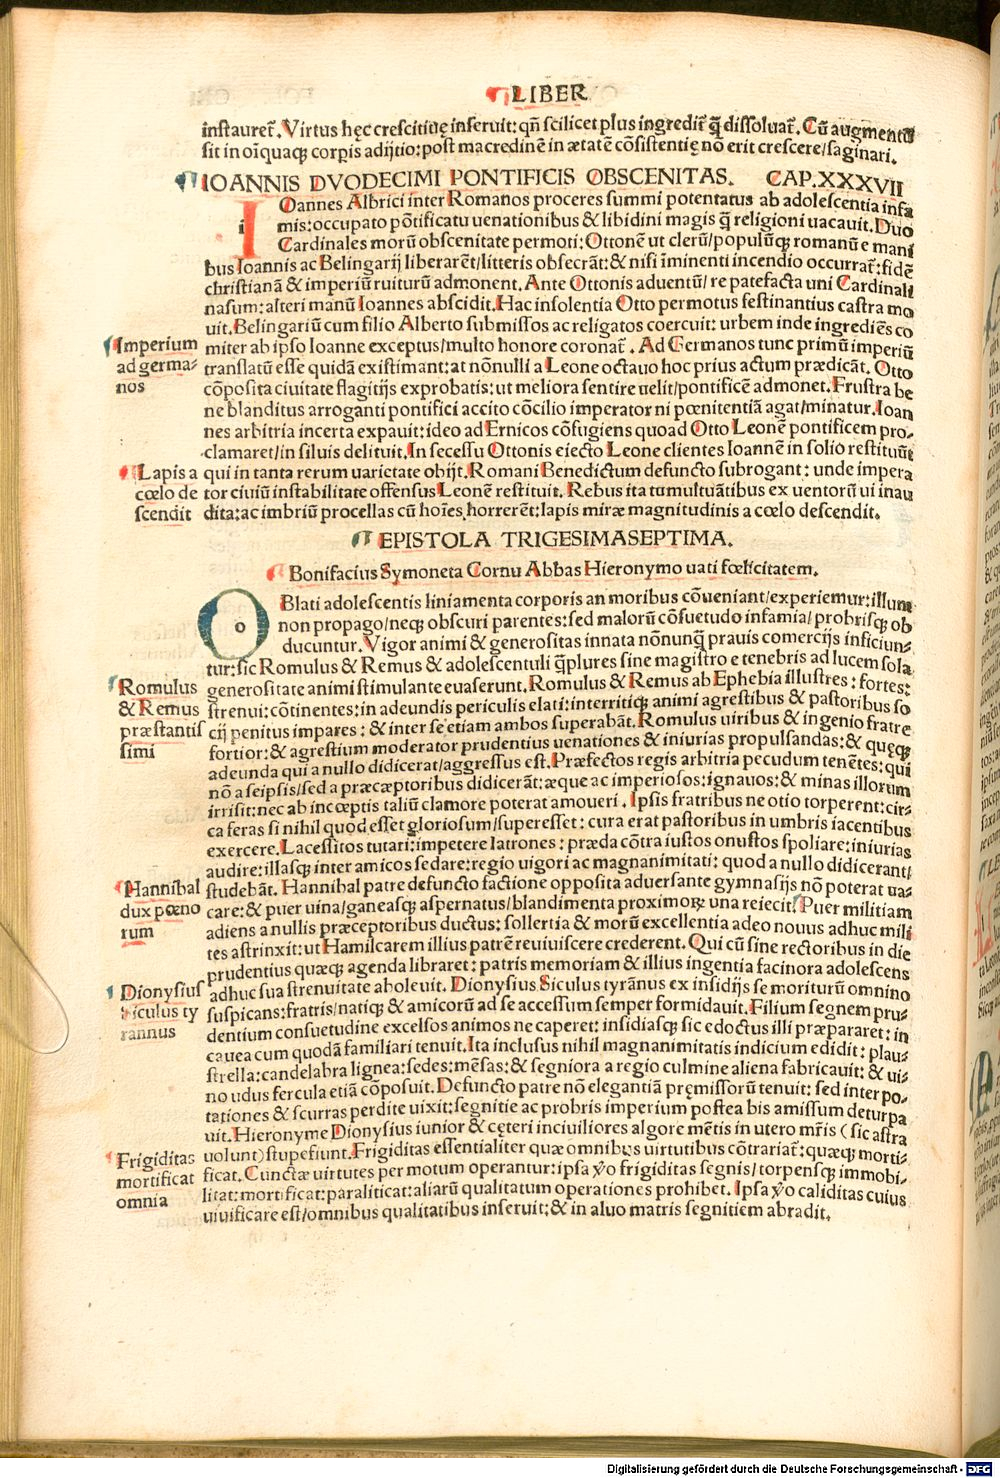 LIBER
instaureť. Virtus hęc crescitiuę inseruit: qñ scilicet plus ingrediť q̃ dissoluať. Cũ augmentũ
sit in oĩquaqꝫ corpꝑis adijtio: post macredinẽ in ætatẽ cõsistentię nõ erit crescere/saginari.
IOANNIS DVODECIMI PONTIFICIS OBSCENITAS. CAP.XXXVII
IOannes Albrici inter Romanos proceres summi potentatus ab adolescentia infa
i mis: occupato põtificatu uenationibus & libidini magis q̃ religioni uacauit. Duo
Cardinales morũ obscenitate permoti: Ottonẽ ut clerũ/populũqꝫ romanũ e mani
bus Ioannis ac Belingarij liberarẽt/litteris obsecrãt: & nisi ĩminenti incendio occurrať: fidẽ
christianã & imperiũ ruiturũ admonent. Ante Ottonis aduentũ/re patefacta uni Cardinali
nasum: alteri manũ Ioannes abscidit. Hac insolentia Otto permotus festinantius castra mo
uit. Belingariũ cum filio Alberto submissos ac religatos coercuit: urbem inde ingrediẽs co
Imperium
ad germa⸗
nos
miter ab ipso Ioanne exceptus/multo honore coronať. Ad Germanos tunc primũ imperiũ
translatũ esse quidã existimant: at nõnulli a Leone octauo hoc prius actum prædicãt. Otto
cõposita ciuitate flagitijs exprobatis: ut meliora sentire uelit/pontificẽ admonet. Frustra be
ne blanditus arroganti pontifici accito cõcilio imperator ni pœnitentiã agat/minatur. Ioan
nes arbitria incerta expauit: ideo ad Ernicos cõfugiens quoad Otto Leonẽ pontificem pro⸗
clamaret/in siluis delituit. In secessu Ottonis eiecto Leone clientes Ioannẽ in solio restituũt
Lapis a
cœlo de
scendit
qui in tanta rerum uarietate obijt. Romani Benedictum defuncto subrogant: unde impera
tor ciuiũ instabilitate offensus Leonẽ restituit. Rebus ita tumultuãtibus ex uentorũ ui inau
dita: ac imbriũ procellas cũ hoĩes horrerẽt: lapis miræ magnitudinis a cœlo descendit.
EPISTOLA TRIGESIMASEPTIMA.
Bonifacius Symoneta Cornu Abbas Hieronymo uati fœlicitatem.
OBlati adolescentis liniamenta corporis an moribus cõueniant/experiemur: illum
o non propago/neqꝫ obscuri parentes: sed malorũ cõsuetudo infamia/probrisqꝫ ob
ducuntur. Vigor animi & generositas innata nõnunq̃ prauis comercijs inficiun⸗
tur: sic Romulus & Remus & adolescentuli q̃plures sine magistro e tenebris ad lucem sola
Romulus
& Remus
præstantis
simi
generositate animi stimulante euaserunt. Romulus & Remus ab Ephebia illustres: fortes:
strenui: cõtinentes: in adeundis periculis elati: interritiqꝫ animi agrestibus & pastoribus so
cij penitus impares: & inter se etiam ambos superabãt. Romulus uiribus & ingenio fratre
fortior: & agrestium moderator prudentius uenationes & iniurias propulsandas: & quęqꝫ
adeunda qui a nullo didicerat/aggressus est. Præfectos regis arbitria pecudum tenẽtes: qui
nõ a seipsis/sed a præcæptoribus didicerãt: æque ac imperiosos: ignauos: & minas illorum
irrisit: nec ab incœptis taliũ clamore poterat amoueri. Ipsis fratribus ne otio torperent: cir⸗
ca feras si nihil quod esset gloriosum/superesset: cura erat pastoribus in umbris iacentibus
exercere. Lacessitos tutari: impetere latrones: præda cõtra iustos onustos spoliare: iniurias
audire: illasqꝫ inter amicos sedare: regio uigori ac magnanimitati: quod a nullo didicerant/
Hannibal
dux pœno
rum
studebãt. Hannibal patre defuncto factione opposita aduersante gymnasijs nõ poterat ua⸗
care: & puer uina/ganeasqꝫ aspernatus/blandimenta proximoꝝ una reiecit. Puer militiam
adiens a nullis præceptoribus ductus: sollertia & morũ excellentia adeo nouus adhuc mili
tes astrinxit: ut Hamilcarem illius patrẽ reuiuiscere crederent. Qui cũ sine rectoribus in die
prudentius quæqꝫ agenda libraret: patris memoriam & illius ingentia facinora adolescens
Dionysius
Siculus ty
rannus
adhuc sua strenuitate aboleuit. Dionysius Siculus tyrãnus ex insidijs se moriturũ omnino
suspicans: fratris/natiqꝫ & amicorũ ad se accessum semper formidauit. Filium segnem pru⸗
dentium consuetudine excelsos animos ne caperet: insidiasqꝫ sic edoctus illi præpararet: in
cauea cum quodã familiari tenuit. Ita inclusus nihil magnanimitatis indicium edidit: plau⸗
strella: candelabra lignea: sedes: mẽsas: & segniora a regio culmine aliena fabricauit: & ui⸗
no udus fercula etiã cõposuit. Defuncto patre nõ elegantiã pręmissorũ tenuit: sed inter po⸗
tationes & scurras perdite uixit: segnitie ac probris imperium postea bis amissum deturpa
uit. Hieronyme Dionysius iunior & cęteri inciuiliores algore mẽtis in utero mr̃is (sic astra
Frigiditas
mortificat
omnia
uolunt) stupefiunt. Frigiditas essentialiter quæ omnibus uirtutibus cõtrariať: quæqꝫ morti⸗
ficat. Cunctæ uirtutes per motum operantur: ipsa ỹo frigiditas segnis/torpensqꝫ immobi⸗
litat: mortificat: paraliticat: aliarũ qualitatum operationes prohibet. Ipsa ỹo caliditas cuius
uiuificare est/omnibus qualitatibus inseruit: & in aluo matris segnitiem abradit.
Digitalisierung gefördert durch die Deutsche Forschungsgemeinschaft - DFG